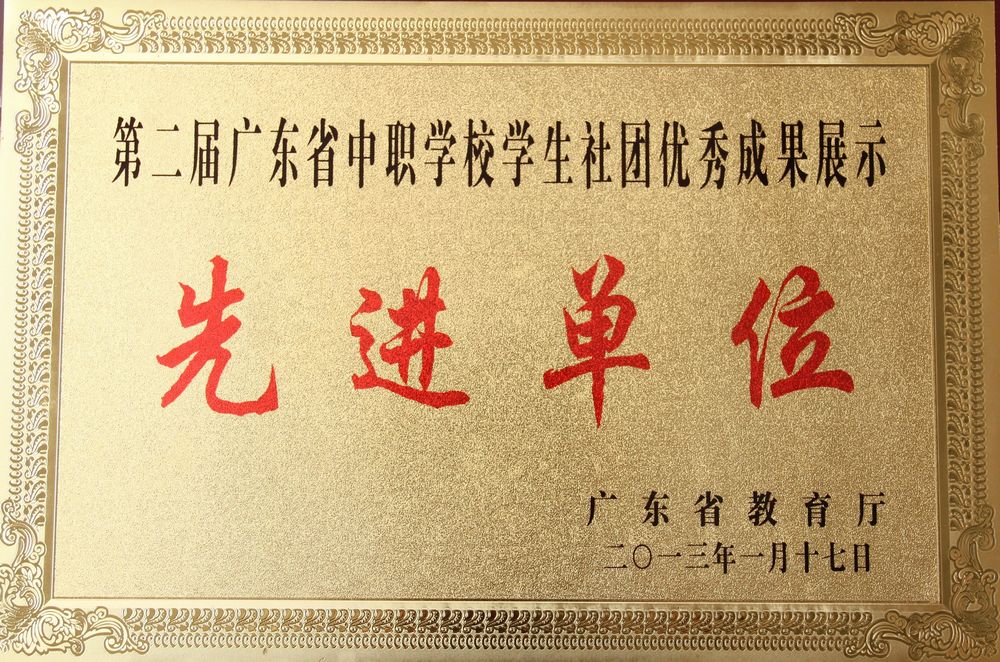 第二届广东省中职学校学生社团优秀成果展示
先进单位
广东省教育厅
二〇一三年一月十七日